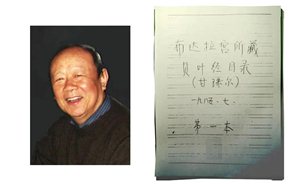 布达拉宫所藏
贝叶经目录
(甘珠尔)
一九八五.七.
第一本